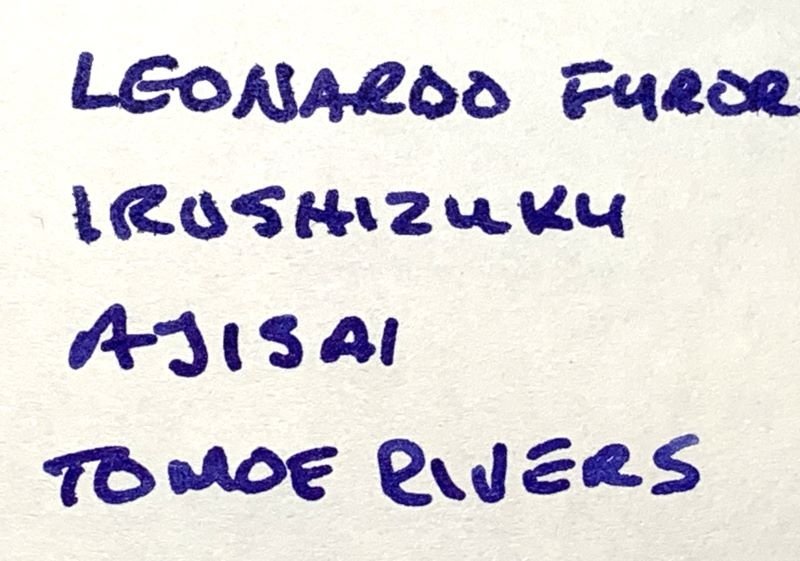 LEONARDO FUROR
IROSHIZUKU
AJISAI
TOMOE RIVERS